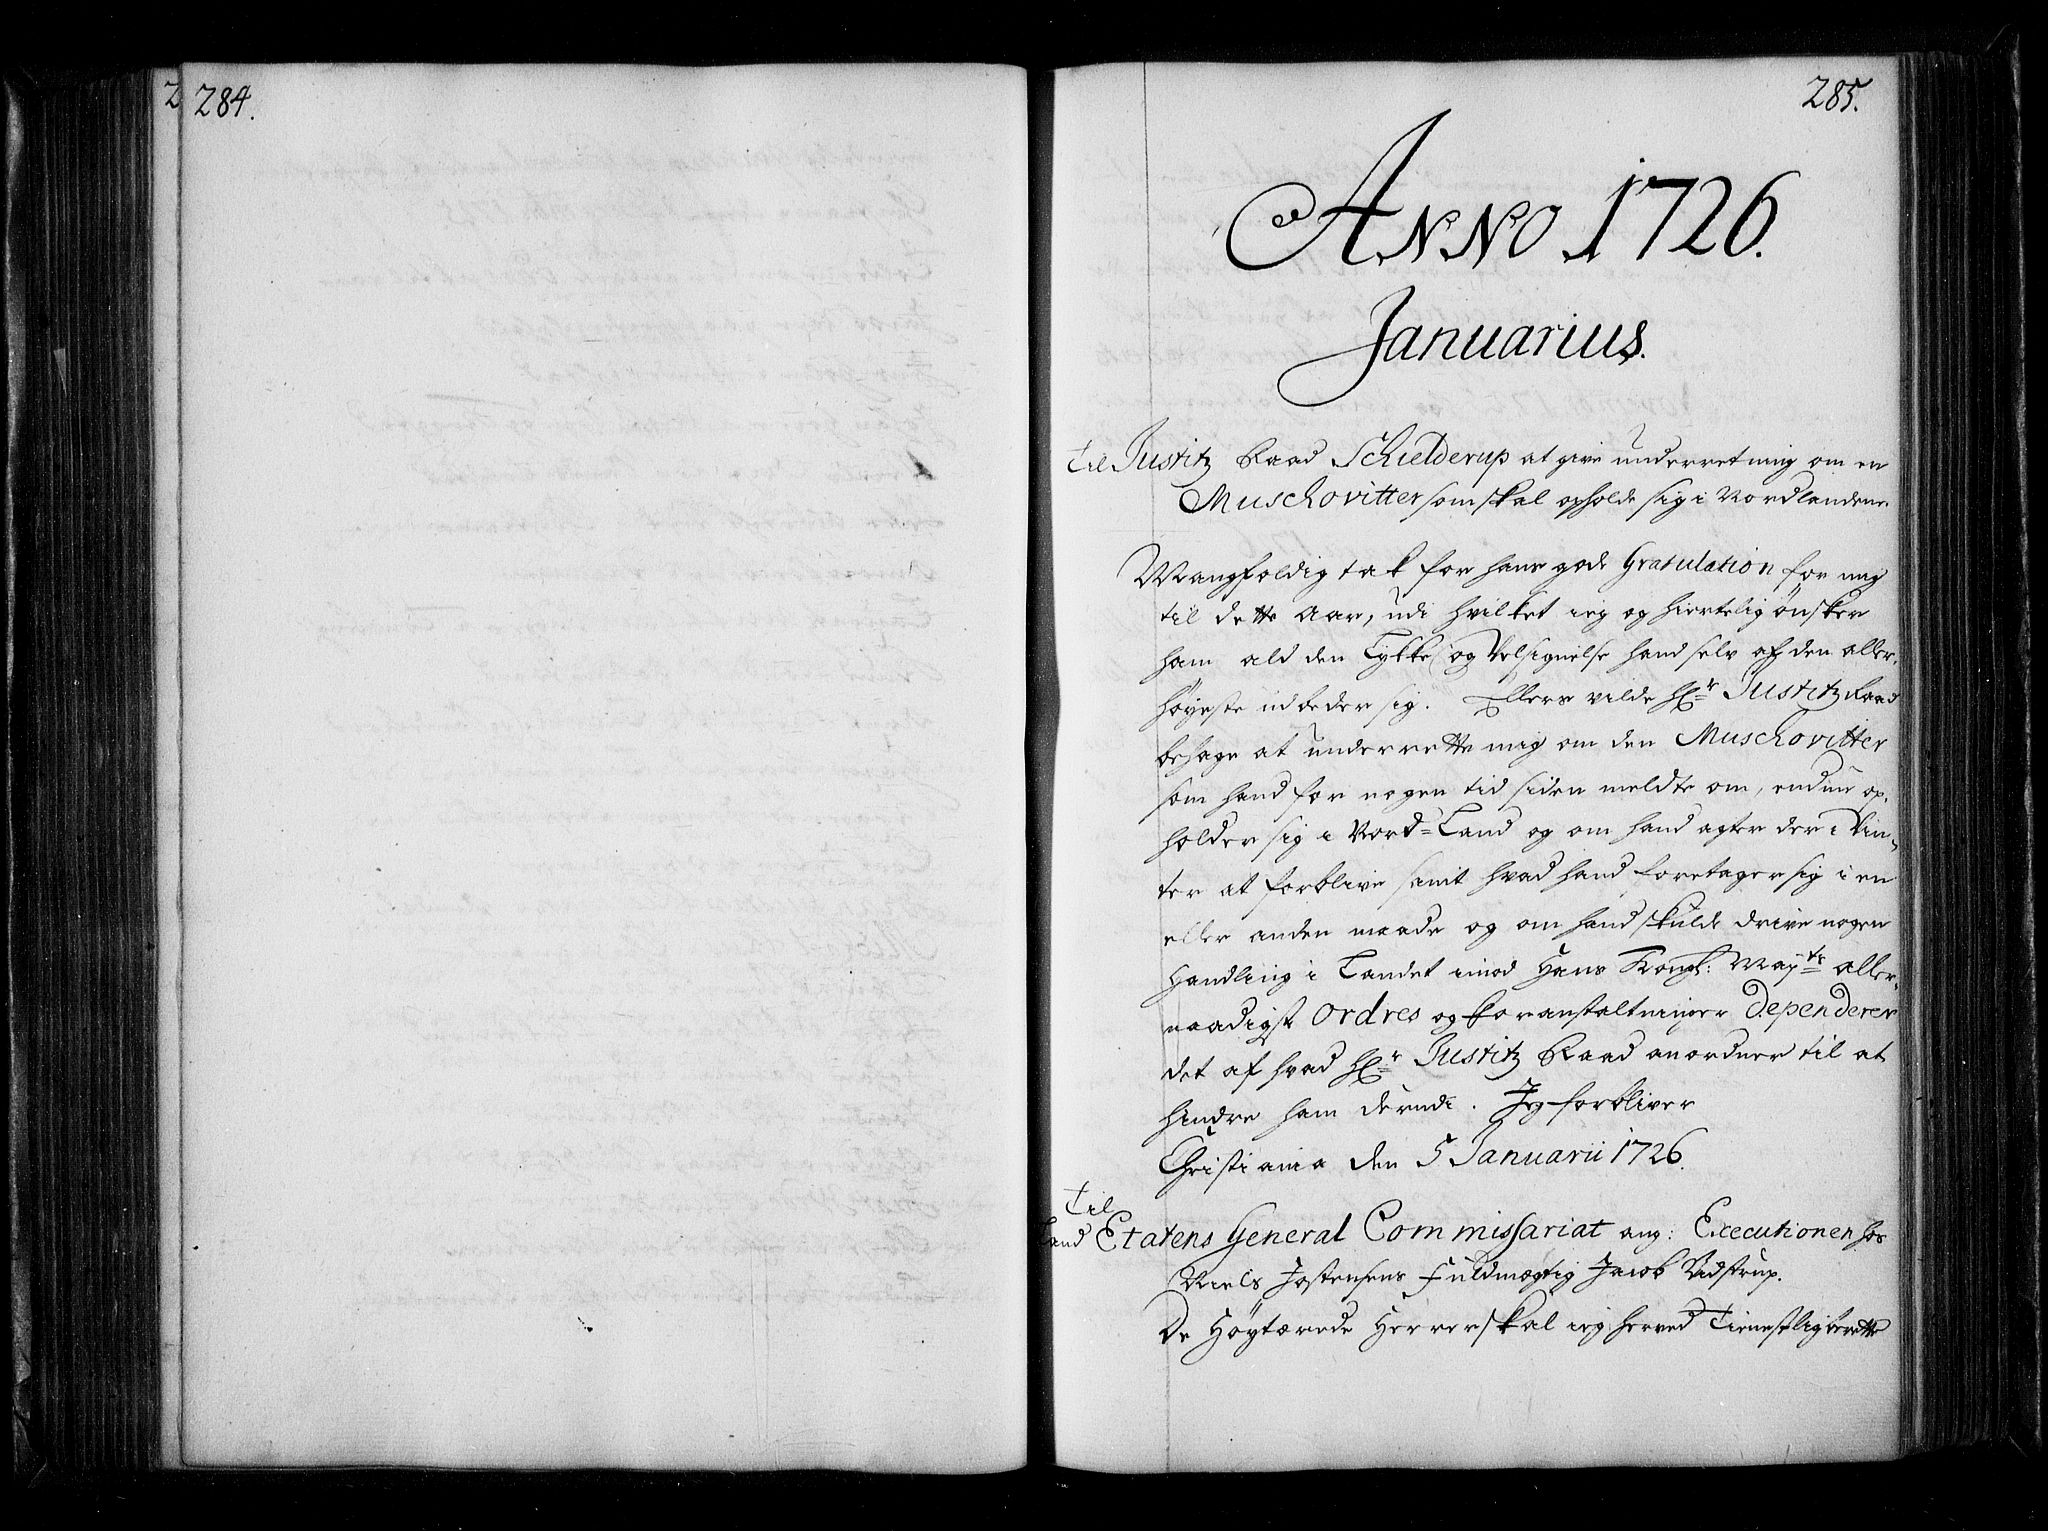 284.
285.
Anno 1726.
Januarius.
Til Justitz Raad Schielderup at give underretning om en
Muschovitter som skal opholde sig i Nordlandene.
Mangfoldig tak for hans gode Gratulation for mig
til dette Aar, udi hvilket ieg og hiertelig ønsker
ham ald den Lykke og Velsignelse hand selv af den aller-
høyeste udbeder sig. Ellers vilde Hr Justitz Raad
behage at underrette mig om den Muschovitter
som hand for nogen tid siden meldte om, endnu op-
holder sig i Nord-Land og om hand agter der i Vin-
ter at forblive samt hvad hand foretager sig i en
eller anden maade og om hand skulde drive nogen
Handling i Landet imod Hans Kongl: Mayts aller-
naadigst Ordres og foranstaltninger Dependerer
det af hvad Hr Justitz Raad anordner til at
hindre ham derudi. Jeg forbliver
Christiania den 5 Januarii 1726.
Til
Land Etatens General Commissariat ang: Executionen hos
Niels Jostensens Fuldmægtig Jacob Vidstrup.
De Høytærede Herrer skal ieg herved Tienstlig berette